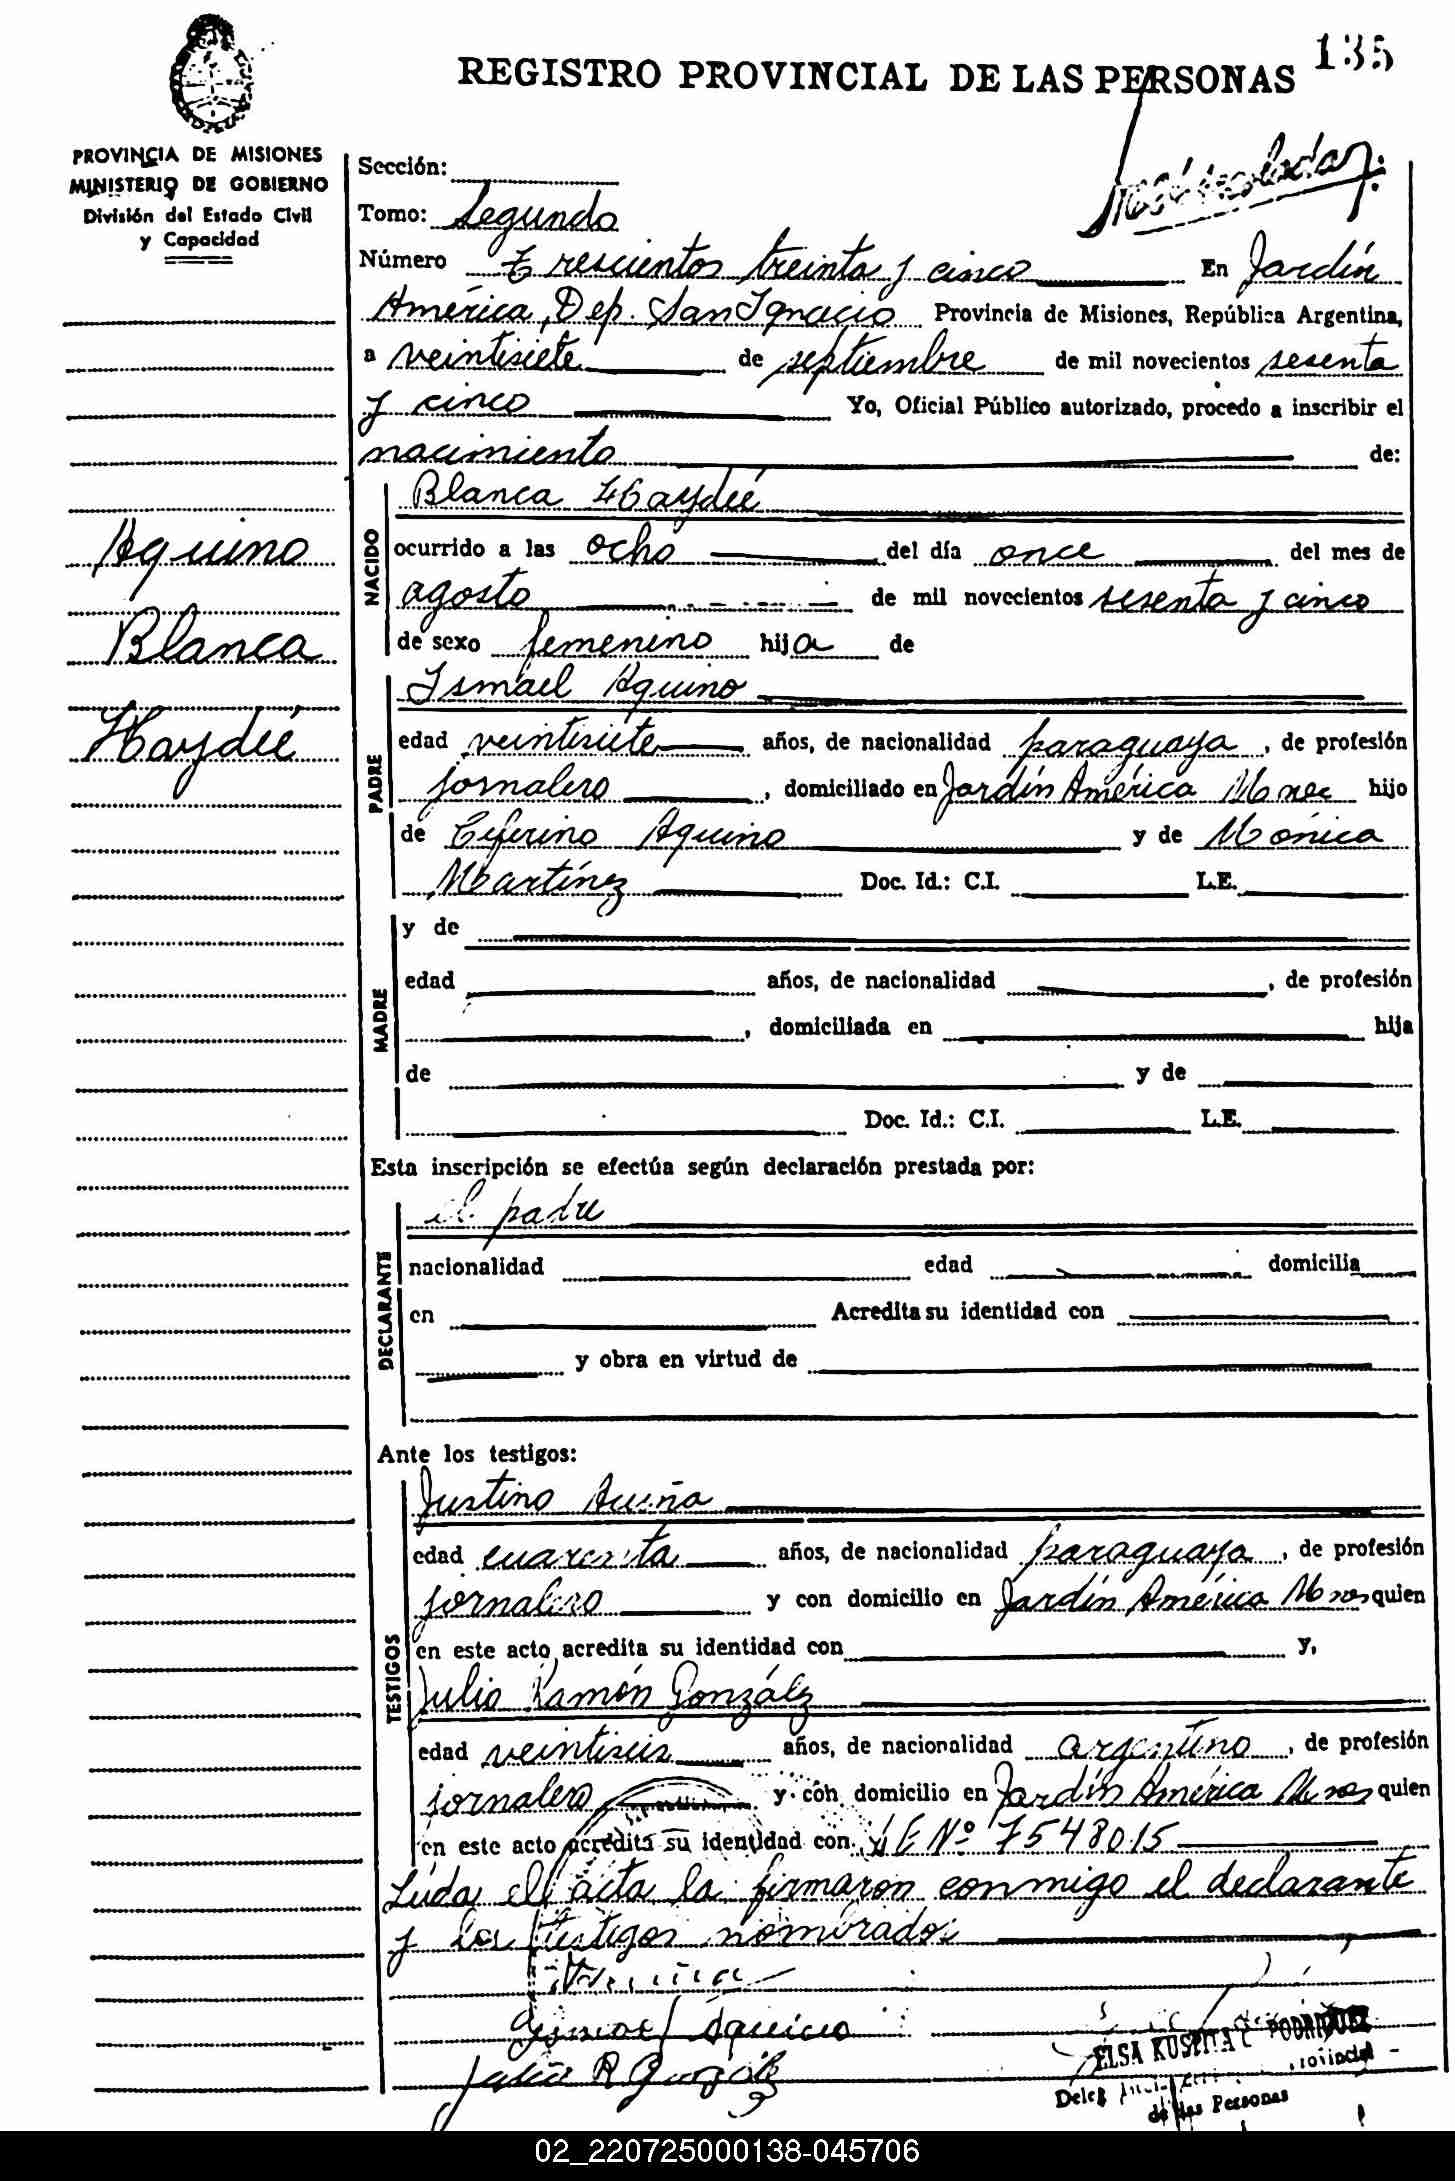 135
REGISTRO PROVINCIAL DE LAS PERSONAS
PROVINCIA DE MISIONES
MINISTERIO DE GOBIERNO
División del Estado Civil
y Capacidad
Aquino
Blanca
Haydeé
Sección:
Tomo: Segundo
Número Trescientos treinta y cinco En Jardín
América, Dep. San Ignacio Provincia de Misiones, República Argentina,
a veintisiete de septiembre de mil novecientos sesenta
y cinco Yo, Oficial Público autorizado, procedo a inscribir el
nacimiento de:
NACIDO
Blanca Haydeé
ocurrido a las ocho del día once del mes de
agosto de mil novecientos sesenta y cinco
de sexo femenino hija de
PADRE
Ismael Aquino
edad veintisiete años, de nacionalidad paraguaya, de profesión
jornalero, domiciliado en Jardín América Mnes hijo
de Ceferino Aquino y de Mónica
Martínez Doc. Id.: C.I. L.E.
MADRE
y de
edad años, de nacionalidad , de profesión
, domiciliada en hija
de y de
Doc. Id.: C.I. L.E.
Esta inscripción se efectúa según declaración prestada por:
DECLARANTE
el padre
nacionalidad edad domicilia
en Acredita su identidad con
y obra en virtud de
Ante los testigos:
TESTIGOS
Justino Acuña
edad cuarenta años, de nacionalidad paraguaya, de profesión
jornalero y con domicilio en Jardín América Mnes quien
en este acto acredita su identidad con y,
Julio Ramón González
edad veintiseis años, de nacionalidad argentino, de profesión
jornalero y con domicilio en Jardín América Mnes quien
en este acto acredita su identidad con LE Nº 7548015
Leída el acta la firmaron conmigo el declarante
y los testigos nombrados
ELSA KUSPITA RODRIGUEZ
de las Personas
02_220725000138-045706